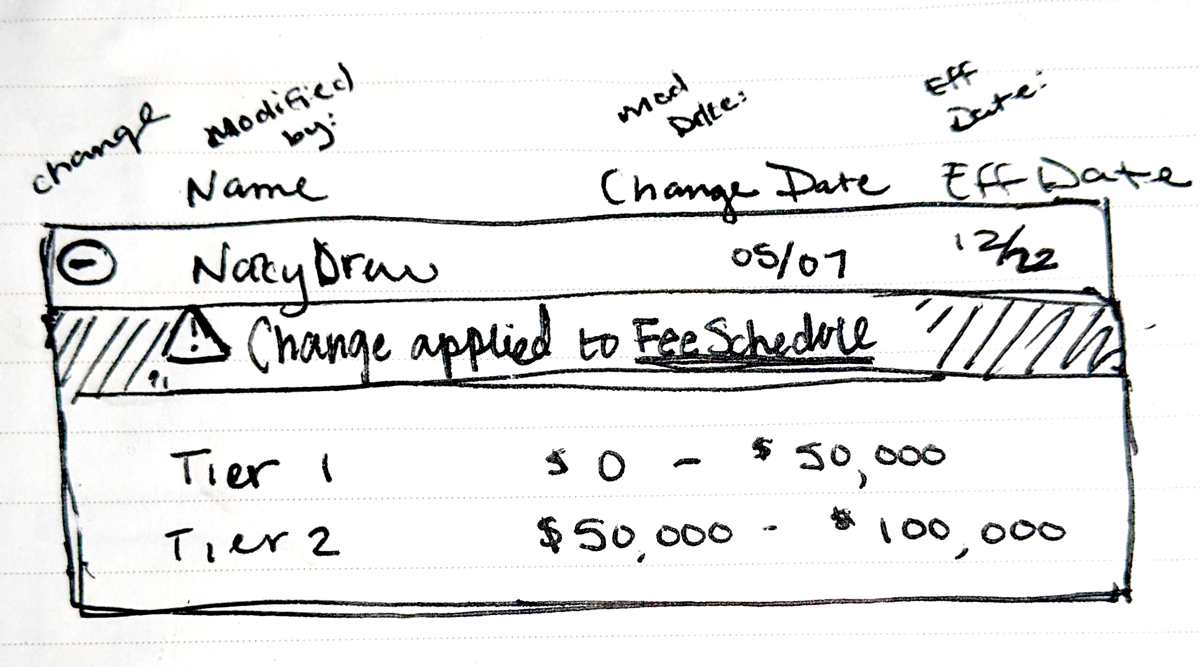 change Modified by: Mod Date: Eff Date:
Name Change Date Eff Date
Nancy Drew 05/07 12/22
Change applied to Fee Schedule
Tier 1 $ 0 - $ 50,000
Tier 2 $50,000 - $ 100,000